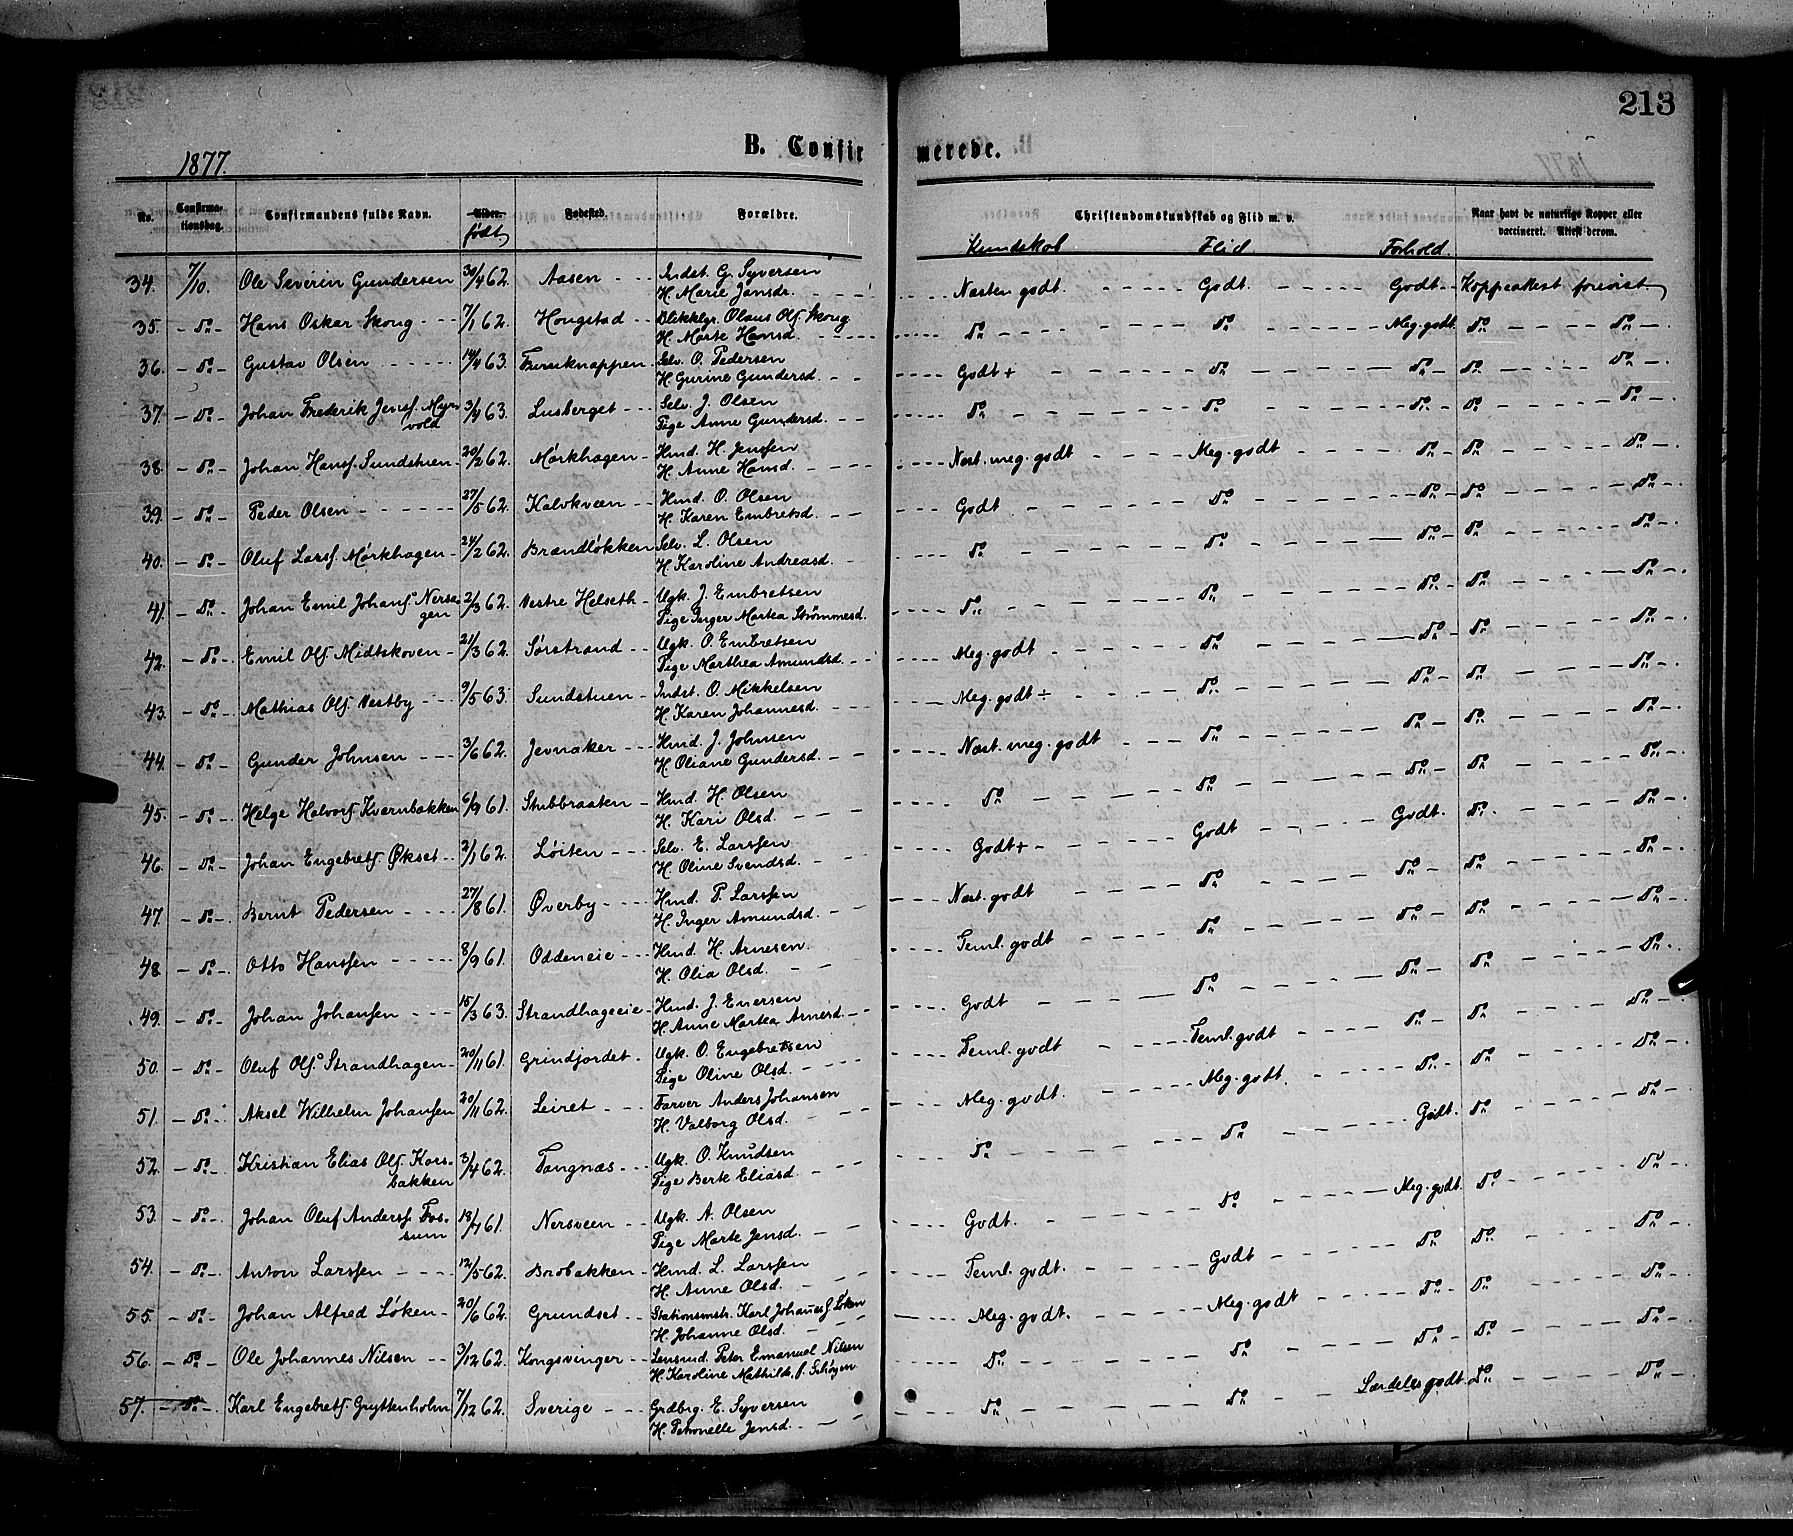 213
1877.
B. Confirmerede.
No. Confirmationsdag. Confirmandens fulde Navn. Alder. født. Fødested. Forældre. Christendomskundskab og Flid m. v. Naar havt de naturlige Kopper eller vaccineret. Attest derom.
Kundskab Flid Forhold.
34. 7/10. Ole Severin Gundersen 30/4 62. Aasen Indst. G. Syversen Næsten godt. Godt. Godt. Koppeattest forevist.
H. Marie Jansdr.
35. do Hans Oskar Skong 7/1 62. Hougstad Blikklgr. Olaus Ols. Skong do do Meg. godt do do
H. Marte Hansd.
36. do Gustav Olsen 14/4 63. Furuknappen Selv. O. Pedersen Godt + do do do do
H. Gurine Gundersd.
37. do Johan Frederik Jens. Myrvold 3/4 63. Lusberget Selv. J. Olsen do do do do do
Pige Anne Gundersd.
38. do Johan Hans. Sundstuen 20/2 62. Mørkhagen Hmd. H. Jenssen Næst. meg. godt Meg. godt do do do
H. Anne Hansd.
39. do Peder Olsen 27/5 62. Kalvkveen Hmd. O. Olsen Godt do do do do
H. Karen Embretsd.
40. do Oluf Lars. Mørkhagen 24/2 62. Brændløkken Selv. L. Olsen do do do do do
H. Karoline Andreasd.
41. do Johan Emil Johans. Nersagen 2/3 62. Vestre Helseth Ugk. J. Embretsen do do do do do
Pige Inger Martea Strømmesd.
42. do Emil Ols. Midtskoven 21/3 62. Sørstrand Ugk. O. Embretsen Meg. godt do do do do
Pige Marthea Amundsd.
43. do Mathias Ols. Vestby 9/5 63. Sundstuen Indst. O. Mikkelsen Meg. godt ÷ do do do do
H. Karen Johannesd.
44. do Gunder Johnsen 3/6 62. Jevnaker Hmd. J. Johnsen Næst. meg. godt do do do do
H. Oliane Gundersd.
45. do Helge Halvors. Kvernbakken 6/9 61. Stubbraaten Hmd. H. Olsen do do do do do
H. Kari Olsd.
46. do Johan Engebrets. Økset 2/1 62. Løiten Selv. E. Larssen Godt + Godt Godt. do do
H. Oline Svendsd.
47. do Bernt Pedersen 27/8 61. Øverby Hmd. P. Larssen Næst. godt do do do do
H. Inger Amundsd.
48. do Otto Hanssen 8/9 61. Oddeneie Hmd. H. Arnesen Teml. godt do do do do
H. Olia Olsd.
49. do Johan Johansen 15/3 63. Strandhageeie Hmd. J. Enersen Godt do do do do
H. Anne Martea Arnesd.
50. do Oluf Ols. Strandhagen 20/11 61. Grindjordet Ugk. O. Engebretsen Teml. godt Teml. godt do do do
Pige Oline Olsd.
51. do Aksel Wilhelm Johansen 20/11 62. Leiret Farver Anders Johansen Meg. godt. Meg. godt. do do do
H. Valborg Olsd.
52. do Kristian Elias Ols. Korsbakken 3/4 62. Tangnæs Ugk. O. Knudsen do do Godt. do do
Pige Berte Eliasd.
53. do Johan Oluf Anders. Fossum 13/4 61. Nersveen Ugk. A. Olsen Godt. do Meg. godt. do do
Pige Marte Jensd.
54. do Anton Larssen 12/5 62. Brobakken Hmd. L. Larssen Teml. godt. Godt do do do
H. Anne Olsd.
55. do Johan Alfred Løken 20/6 62. Grundset Stationsmstr. Karl Johanes. Løken Meg. godt. Meg. godt do do do
H. Johanne Olsd.
56. do Ole Johannes Nilsen 3/12 62. Kongsvinger Lensmd. Peter Emanuel Nilsen do do do do do
H. Karoline Mathilde f. Schøyen
57. do Karl Engebrets. Gryttenholm 7/12 62. Sverige Grdbrg. E. Syversen do do Særdeles godt do do
H. Petronelle Jensd.